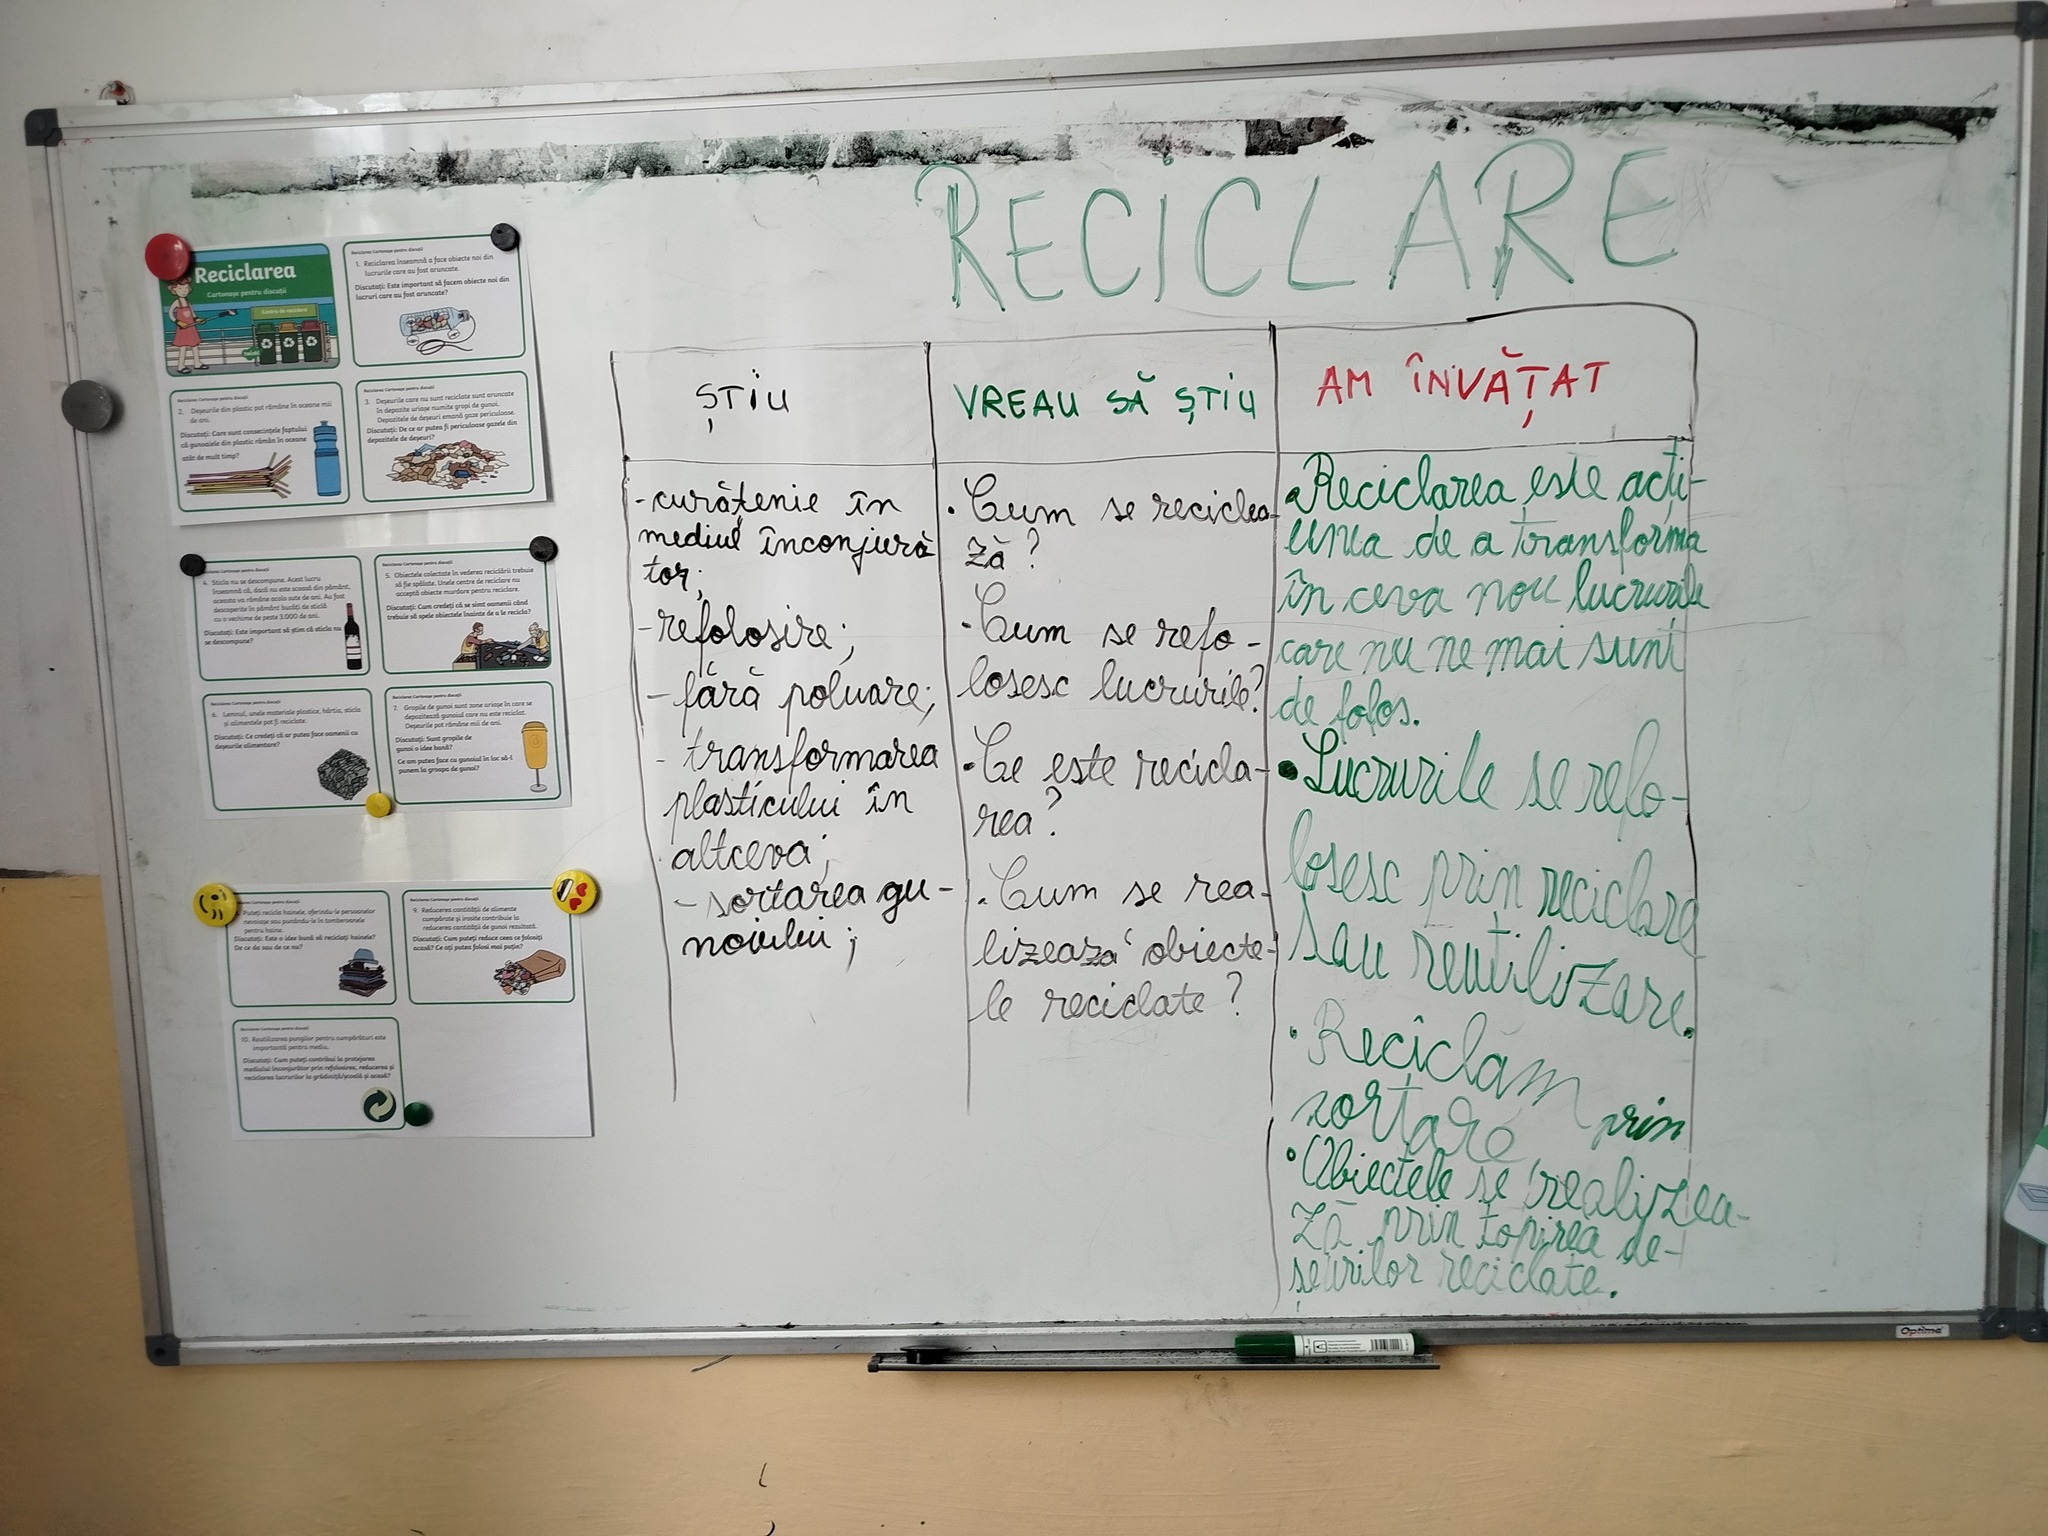 RECICLARE
ȘTIU
-curățenie în
mediul înconjură
tor;
-refolosire;
- fără poluare;
- transformarea
plasticului în
altceva;
- sortarea gu-
noiului;
VREAU SĂ ȘTIU
• Cum se reciclea-
ză?
• Cum se refo-
losesc lucrurile?
• Ce este recicla-
rea?
• Cum se rea-
lizează obiecte-
le reciclate?
AM ÎNVĂȚAT
• Reciclarea este acți-
unea de a transforma
în ceva nou lucrurile
care nu ne mai sunt
de folos.
• Lucrurile se refo-
losesc prin reciclare
sau reutilizare.
• Reciclăm prin
sortare
• Obiectele se realizea-
ză prin topirea de-
șeurilor reciclate.
Reciclarea
Cartonașe pentru discuții
Centru de reciclare
Reciclarea Cartonașe pentru discuții
1. Reciclarea înseamnă a face obiecte noi din
lucrurile care au fost aruncate.
Discutați: Este important să facem obiecte noi din
lucruri care au fost aruncate?
Reciclarea Cartonașe pentru discuții
2. Deșeurile din plastic pot rămâne în oceane mii
de ani.
Discutați: Care sunt consecințele faptului
că gunoaiele din plastic rămân în oceane
atât de mult timp?
Reciclarea Cartonașe pentru discuții
3. Deșeurile care nu sunt reciclate sunt aruncate
în depozite uriașe numite gropi de gunoi.
Depozitele de deșeuri emană gaze periculoase.
Discutați: De ce ar putea fi periculoase gazele din
depozitele de deșeuri?
Cartonașe pentru discuții
4. Sticla nu se descompune. Acest lucru
înseamnă că, dacă nu este scoasă din pământ,
aceasta va rămâne acolo sute de ani. Au fost
descoperite în pământ bucăți de sticlă
cu o vechime de peste 3.000 de ani.
Discutați: Este important să știm că sticla nu
se descompune?
Reciclarea Cartonașe pentru discuții
5. Obiectele colectate în vederea reciclării trebuie
să fie spălate. Unele centre de reciclare nu
acceptă obiecte murdare pentru reciclare.
Discutați: Cum credeți că se simt oamenii când
trebuie să spele obiectele înainte de a le recicla?
Reciclarea Cartonașe pentru discuții
6. Lemnul, unele materiale plastice, hârtia, sticla
și alimentele pot fi reciclate.
Discutați: Ce credeți că ar putea face oamenii cu
deșeurile alimentare?
Reciclarea Cartonașe pentru discuții
7. Gropile de gunoi sunt zone uriașe în care se
depozitează gunoiul care nu este reciclat.
Deșeurile pot rămâne mii de ani.
Discutați: Sunt gropile de
gunoi o idee bună?
Ce am putea face cu gunoiul în loc să-l
punem la groapa de gunoi?
Cartonașe pentru discuții
Puteți recicla hainele, oferindu-le persoanelor
nevoiașe sau punându-le în tomberoanele
pentru haine.
Discutați: Este o idee bună să reciclați hainele?
De ce da sau de ce nu?
Reciclarea Cartonașe pentru discuții
9. Reducerea cantității de alimente
cumpărate și irosite contribuie la
reducerea cantității de gunoi rezultată.
Discutați: Cum puteți reduce ceea ce folosiți
acasă? Ce ați putea folosi mai puțin?
Reciclarea Cartonașe pentru discuții
10. Reutilizarea pungilor pentru cumpărături este
importantă pentru mediu.
Discutați: Cum puteți contribui la protejarea
mediului înconjurător prin refolosirea, reducerea și
reciclarea lucrurilor la grădiniță/școală și acasă?
Optima